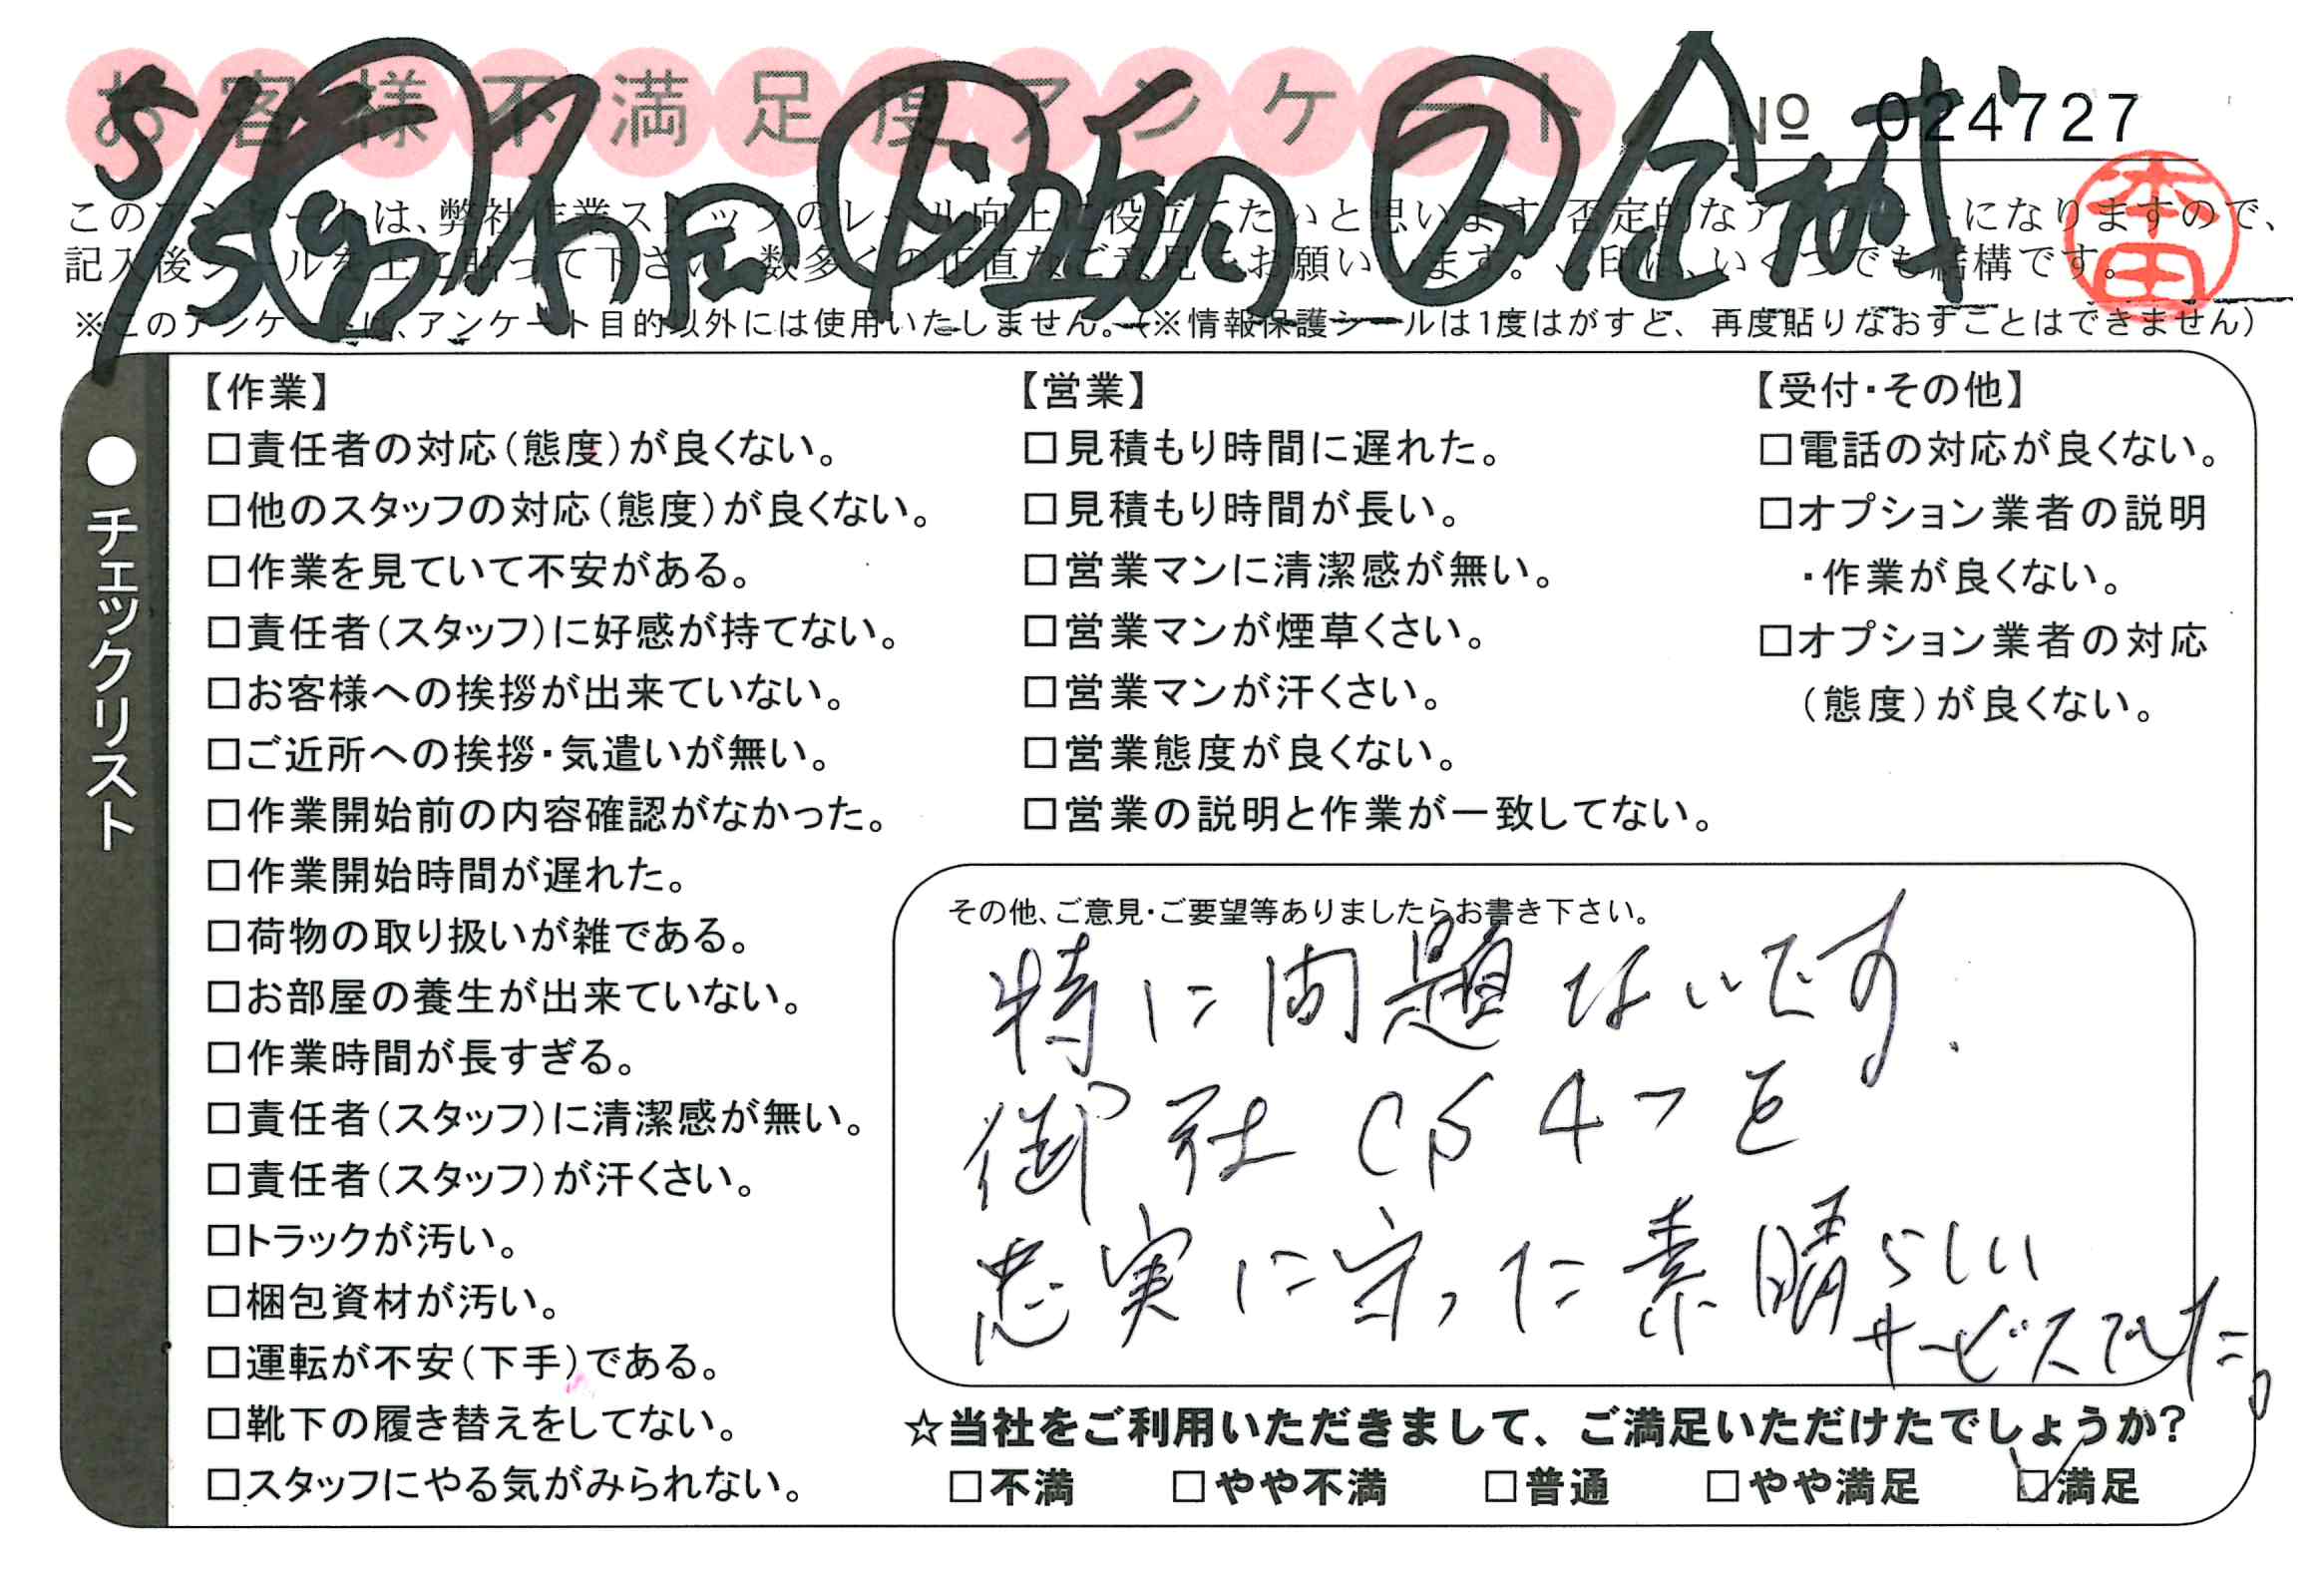 お客様不満足度アンケート
№ 024727
このアンケートは、弊社作業スタッフのレベル向上に役立てたいと思います。否定的なアンケートになりますので、
記入後シールを上に貼って下さい。数多くの正直なご意見をお願いします。✓印は、いくつでも結構です。
※このアンケートは、アンケート目的以外には使用いたしません。(※情報保護シールは1度はがすと、再度貼りなおすことはできません)
本田
●チェックリスト
【作業】
□責任者の対応(態度)が良くない。
□他のスタッフの対応(態度)が良くない。
□作業を見ていて不安がある。
□責任者(スタッフ)に好感が持てない。
□お客様への挨拶が出来ていない。
□ご近所への挨拶・気遣いが無い。
□作業開始前の内容確認がなかった。
□作業開始時間が遅れた。
□荷物の取り扱いが雑である。
□お部屋の養生が出来ていない。
□作業時間が長すぎる。
□責任者(スタッフ)に清潔感が無い。
□責任者(スタッフ)が汗くさい。
□トラックが汚い。
□梱包資材が汚い。
□運転が不安(下手)である。
□靴下の履き替えをしてない。
□スタッフにやる気がみられない。
【営業】
□見積もり時間に遅れた。
□見積もり時間が長い。
□営業マンに清潔感が無い。
□営業マンが煙草くさい。
□営業マンが汗くさい。
□営業態度が良くない。
□営業の説明と作業が一致してない。
【受付・その他】
□電話の対応が良くない。
□オプション業者の説明
・作業が良くない。
□オプション業者の対応
(態度)が良くない。
その他、ご意見・ご要望等ありましたらお書き下さい。
特に問題ないです.
御社CS4つを
忠実に守った素晴らしい
サービスでした。
☆当社をご利用いただきまして、ご満足いただけたでしょうか?
□不満 □やや不満 □普通 □やや満足 ☑満足